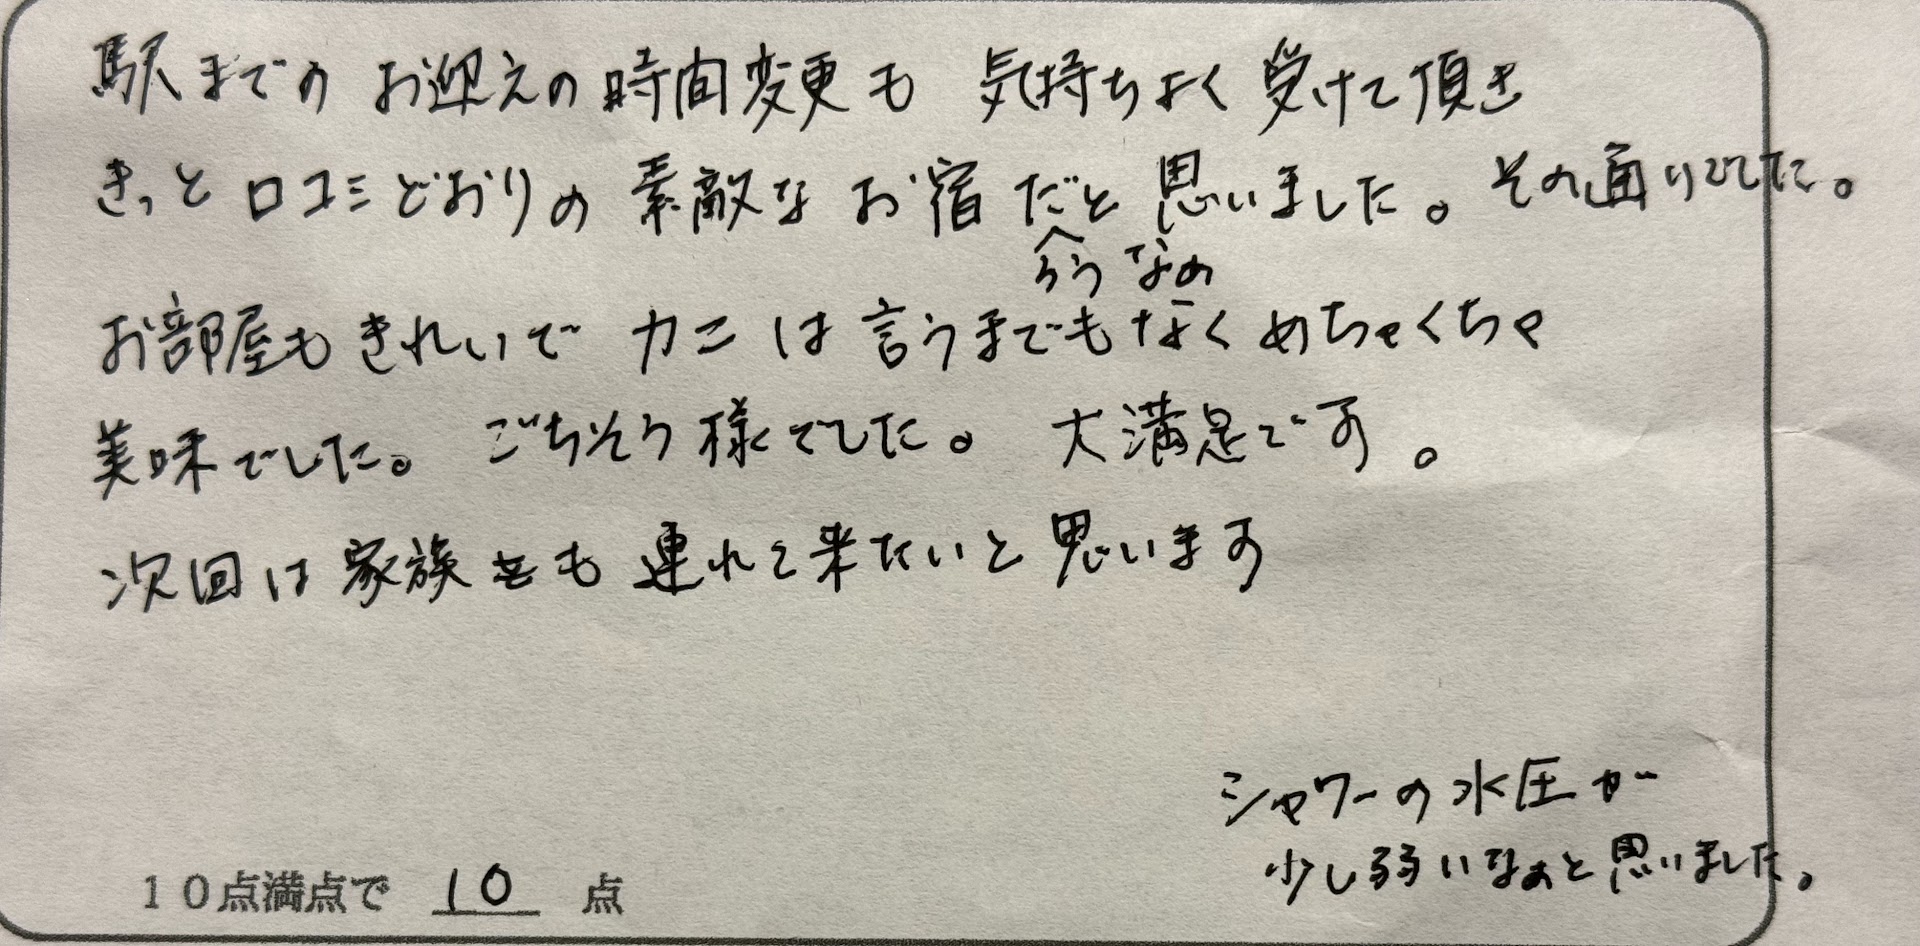 駅までの お迎えの時間変更も 気持ちよく受けて頂き
きっと口コミどおりの 素敵な お宿だと思いました。その通りでした。
お部屋もきれいで カニは言うまでもなくめちゃくちゃ
美味でした。ごちそう様でした。 大満足です。
次回は家族をも連れて来たいと思います
シャワーの水圧が
少し弱いなぁと思いました。
10点満点で 10 点